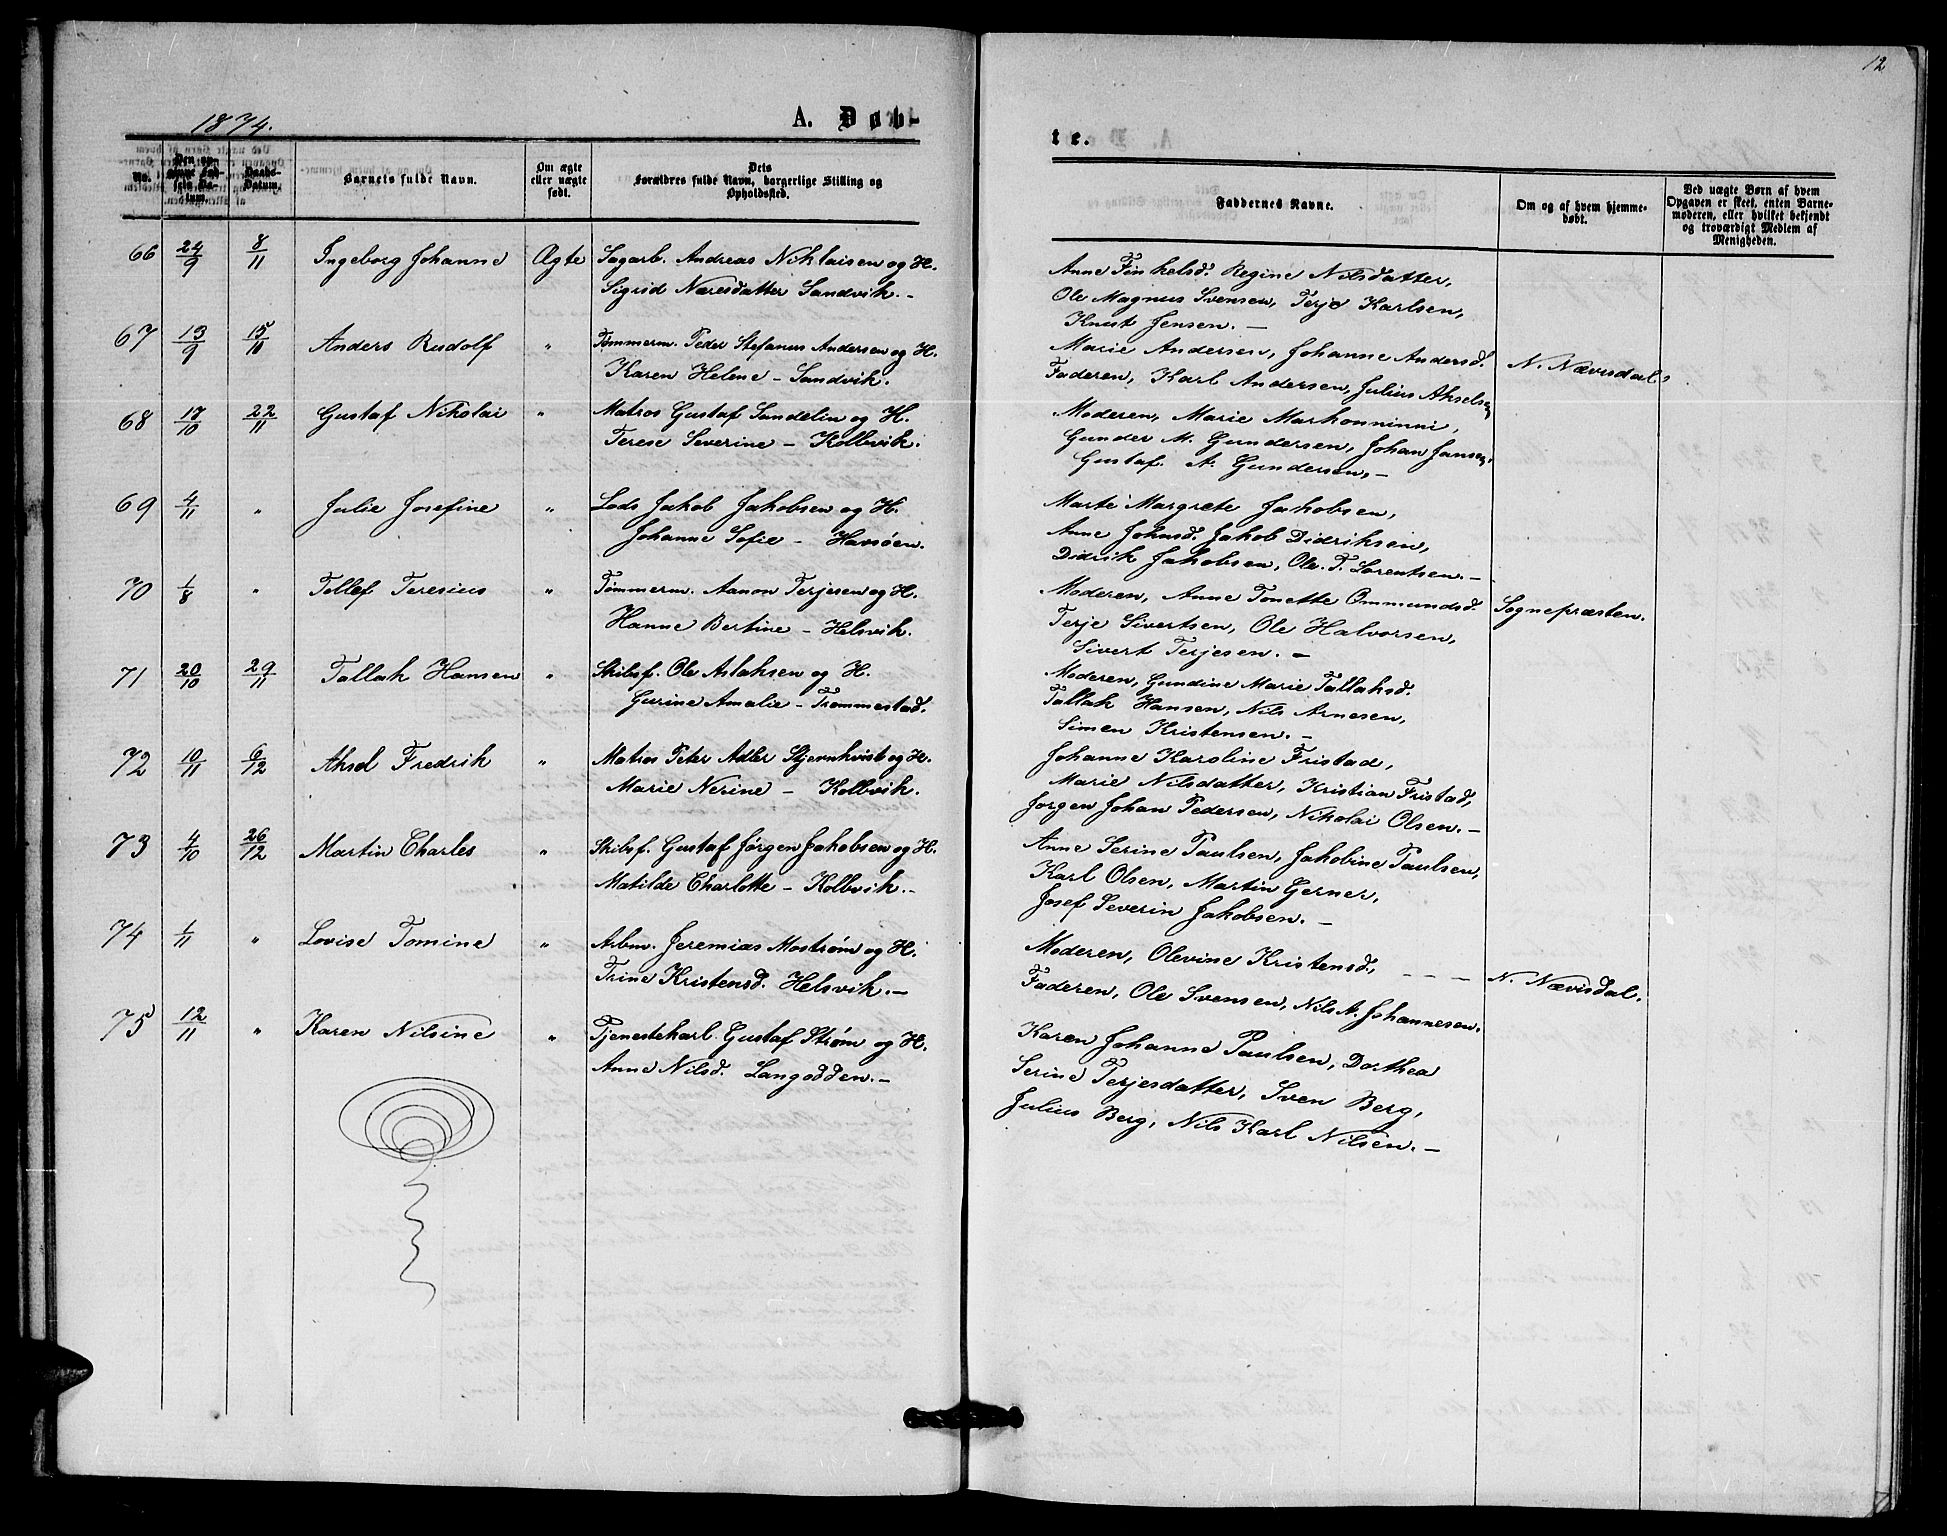 12
1874.
A. Døb-
te.
No.
Daabs-
Datum.
Barnets fulde Navn.
Om ægte
eller uægte
født.
Dets
Forældres fulde Navn, borgerlige Stilling og
Opholdssted.
Faddernes Navne.
Om og af hvem hjemme-
døbt.
Ved uægte Børn af hvem
Opgaven er skeet, enten Barne-
moderen, eller hvilket bekjendt
og troværdigt Medlem af
Menigheden.
66 24/9 8/11 Ingeborg Johanne Ægte Sagarb. Andreas Niklaisen og H.
Sigrid Næresdatter Sandvik. -
Anne Finkelsd. Regine Nilsdatter,
Ole Magnus Svensen, Terje Karlsen,
Knut Jensen. -
67 13/9 15/10 Anders Rudolf " Tømmerm. Peder Stefanus Andersen og H.
Karen Helene - Sandvik.
Marie Andersen, Johanne Andersd.
Faderen, Karl Andersen, Julius Akselsen
N. Nævisdal
68 17/10 22/11 Gustaf Nikolai " Matros Gustaf Sandelin og H.
Terese Severine - Kolbvik.
Moderen, Marie Markonninni,
Gunder M. Gundersen, Johan Jansen,
Gustaf A. Gundersen, -
69 4/11 " Julie Josefine " Lods Jakob Jakobsen og H.
Johanne Sofie - Havsøen.
Marte Margrete Jakobsen,
Anne Johnsd. Jakob Didriksen,
Didrik Jakobsen, Ole T. Lorentsen. -
70 1/8 " Tellef Teresius " Tømmerm. Aanon Terjesen og H.
Hanne Bertine - Helsvik.
Moderen, Anne Tonette Ommundsd.
Terje Sivertsen, Ole Halvorsen,
Sivert Terjesen. -
Sognepræsten.
71 20/10 29/11 Tallak Hansen " Skibsf. Ole Aslaksen og H.
Gurine Amalie - Trommestad.
Moderen, Gundine Marie Tallaksd.
Tallak Hansen, Nils Arnesen,
Simen Kristensen. -
72 10/11 6/12 Aksel Fredrik " Matros Peter Adler Stjernkvist og H.
Marie Nerine - Kolbvik.
Johanne Karoline Fristad,
Marie Nilsdatter, Kristian Fristad,
Jørgen Johan Pedersen, Nikolai Olsen. -
73 4/10 26/12 Martin Charles " Skibsf. Gustaf Jørgen Jakobsen og H.
Matilde Charlotte - Kolbvik. -
Anne Serine Paulsen, Jakobine Paulsen,
Karl Olsen, Martin Gerner,
Josef Severin Jakobsen. -
74 1/11 " Lovise Tomine " Arbm. Jeremias Mostrøm og H.
Trine Kristensd. Helsvik. -
Moderen, Olevine Kristensd., - - -
Faderen, Ole Svensen, Nils A. Johannesen.
N. Nævisdal.
75 12/11 " Karen Nilsine " Tjenestekarl Gustaf Strøm og H.
Anne Nilsd. Langodden. -
Karen Johanne Paulsen, Dorthea
Serine Terjesdatter, Sven Berg,
Julius Berg, Nils Karl Nilsen. -